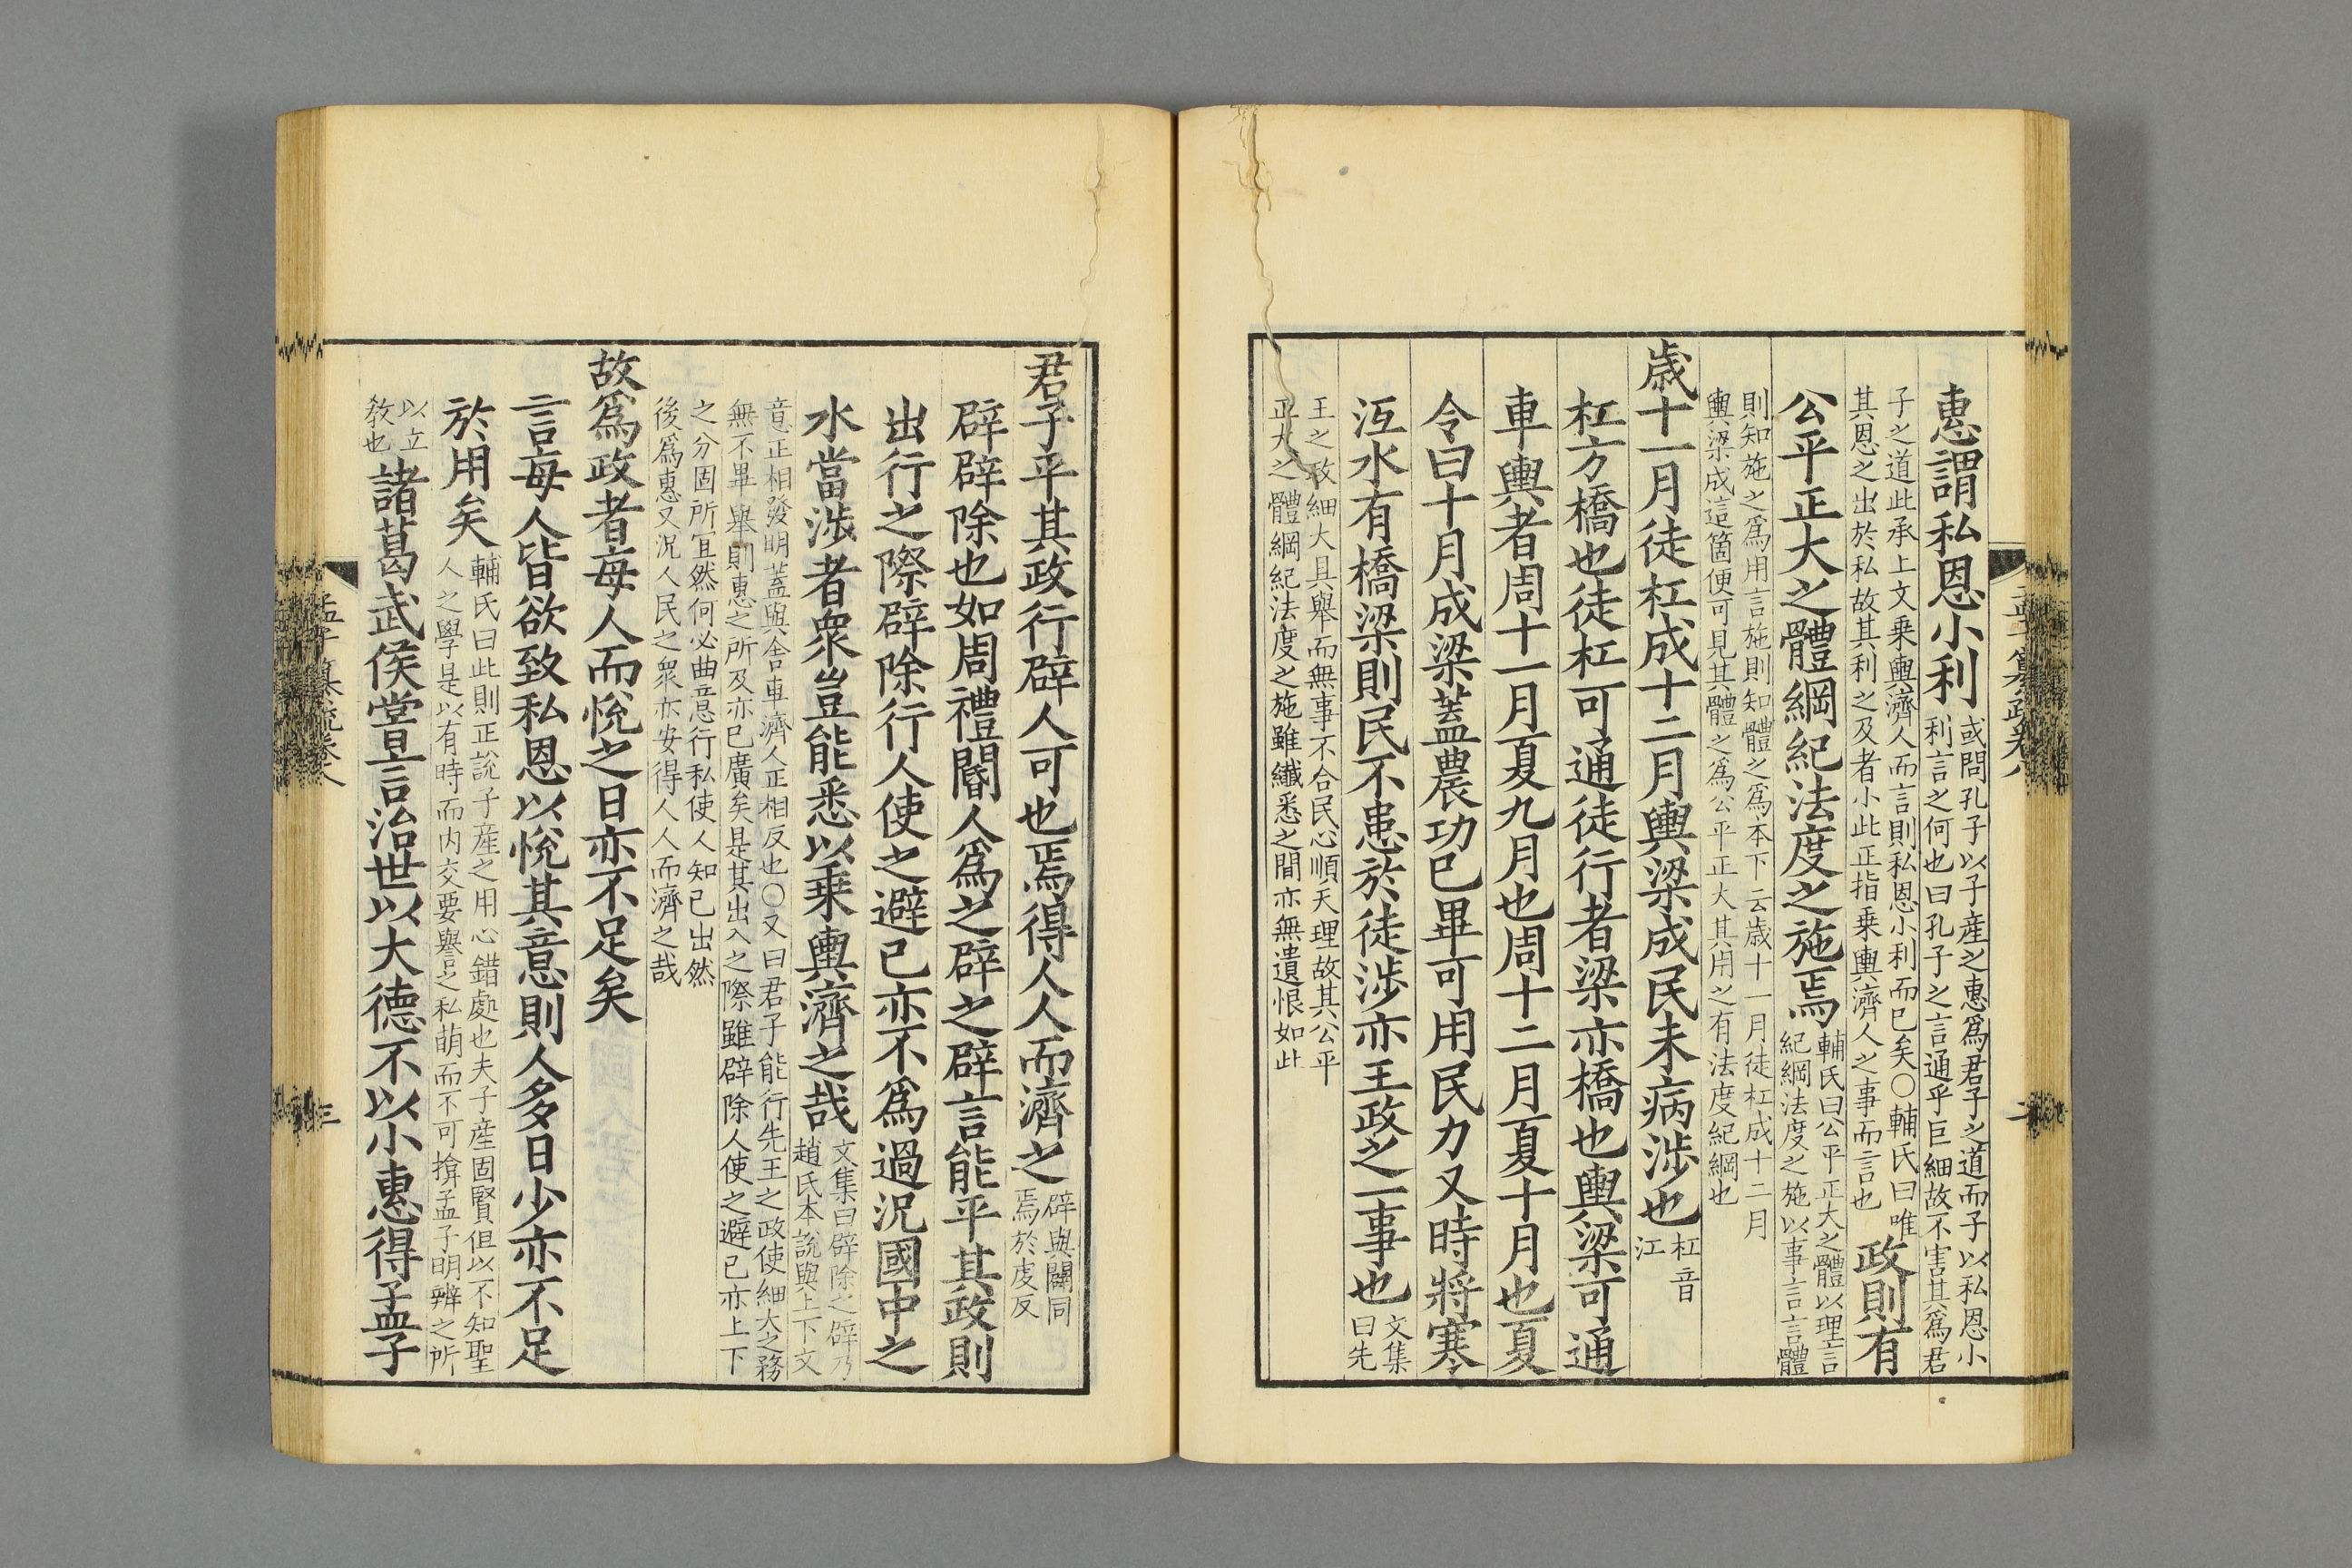 惠謂私恩小利或問孔子以子産之惠爲君子之道而子以私恩小
利言之何也曰孔子之言通乎巨細故不害其爲君
子之道此承上文乗輿濟人而言則私恩小利而已矣○輔氏曰唯
其恩之出於私故其利之及者小此正指乗輿濟人之事而言也政則有
公平正大之體綱紀法度之施焉輔氏曰公平正大之體以理言
紀綱法度之施以事言言體
則知施之爲用言施則知體之爲本下云歳十一月徒杠成十二月
輿梁成這箇便可見其體之爲公平正大其用之有法度紀綱也
歳十一月徒杠成十二月輿梁成民未病渉也杠音
江
杠方橋也徒杠可通徒行者梁亦橋也輿梁可通
車輿者周十一月夏九月也周十二月夏十月也夏
令曰十月成梁蓋農功已畢可用民力又時將寒
沍水有橋梁則民不患於徒渉亦王政之一事也文集
曰先
王之政細大具舉而無事不合民心順天理故其公平
正大之體綱紀法度之施雖纖悉之間亦無遺恨如此
君子平其政行辟人可也焉得人人而濟之辟與闢同
焉於虔反
辟辟除也如周禮閽人爲之辟之辟言能平其政則
出行之際辟除行人使之避己亦不爲過況國中之
水當渉者衆豈能悉以乗輿濟之哉文集曰辟除之辟乃
趙氏本說與上下文
意正相發明蓋與舍車濟人正相反也○又曰君子能行先王之政使細大之務
無不畢舉則惠之所及亦已廣矣是其出入之際雖辟除人使之避已亦上下
之分固所宜然何必曲意行私使人知已出然
後爲惠又況人民之衆亦安得人人而濟之哉
故爲政者每人而悅之日亦不足矣
言每人皆欲致私恩以悅其意則人多日少亦不足
於用矣輔氏曰此則正說子産之用心錯處也夫子産固賢但以不知聖
人之學是以有時而内交要譽之私萌而不可揜孟子明辨之所
以立
教也諸葛武侯嘗言治世以大德不以小惠得孟子
孟子纂疏卷八
三